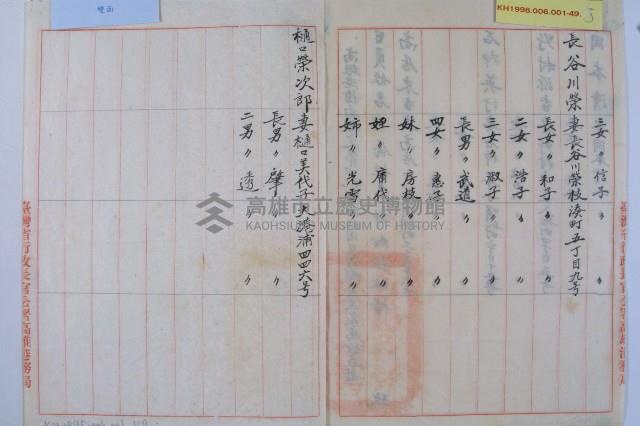 KH1998.006.001-49
雙面
三女〃信子〃
長谷川榮妻長谷川榮枝湊町五丁目九号
長女〃和子〃
二女〃浩子〃
三女〃淑子〃
長男〃武道〃
四女〃惠子〃
妹〃房枝〃
姪〃庸代〃
姉〃光雪〃
樋口榮次郎妻樋口美代子大港浦四四六号
長男〃肇〃
二男〃透〃
臺灣省行政長官公署高雄港務局
高雄市立歷史博物館
KAOHSIUNG MUSEUM OF HISTORY